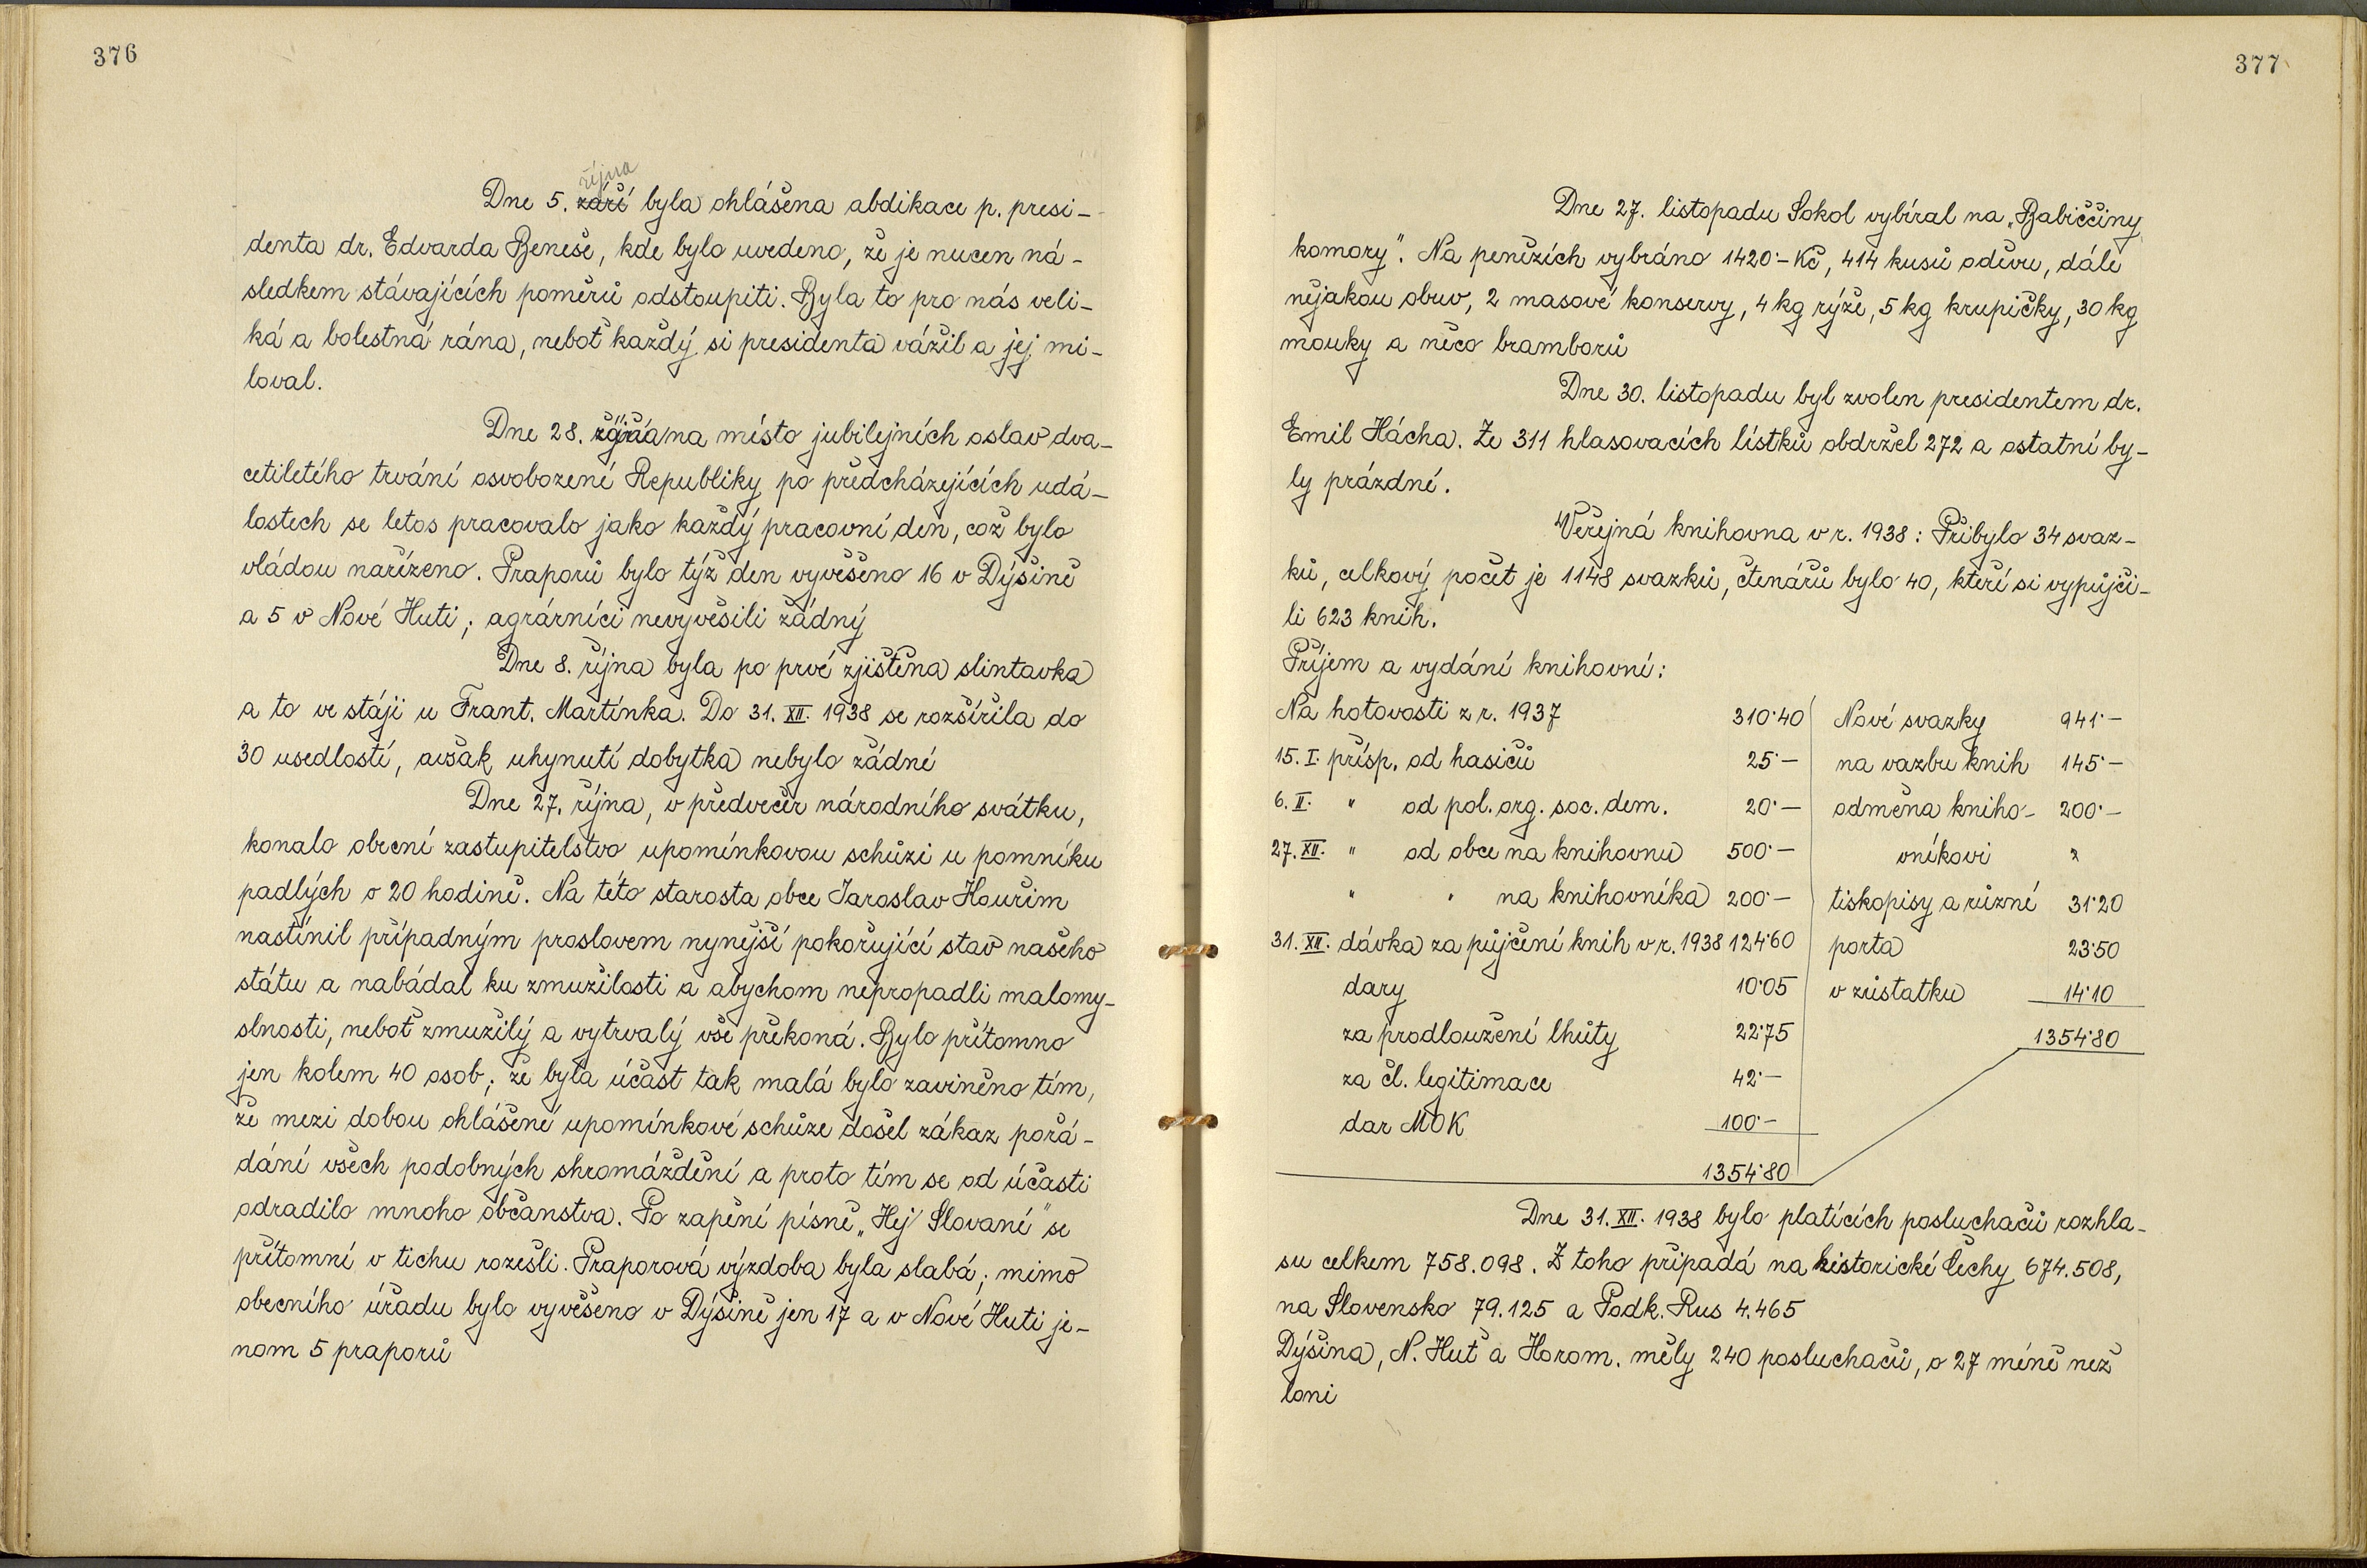 376
října
Dne 5. září byla ohlášena abdikace p. presi-
denta dr. Edvarda Beneše, kde bylo uvedeno, že je nucen ná-
sledkem stávajících poměrů odstoupiti. Byla to pro nás veli-
ká a bolestná rána, neboť každý si presidenta vážil a jej mi-
loval.
Dne 28. října na místo jubilejních oslav dva-
cetiletého trvání osvobozené Republiky po předcházejících udá-
lostech se letos pracovalo jako každý pracovní den, což bylo
vládou nařízeno. Praporů bylo týž den vyvěšeno 16 v Dýšině
a 5 v Nové Huti; agrárníci nevyvěsili žádný
Dne 8. října byla po prvé zjištěna slintavka
a to ve stáji u Frant. Martínka. Do 31. XII. 1938 se rozšířila do
30 usedlostí, avšak uhynutí dobytka nebylo žádné
Dne 27. října, v předvečer národního svátku,
konalo obecní zastupitelstvo upomínkovou schůzi u pomníku
padlých o 20 hodině. Na této starosta obce Jaroslav Kouřim
nastínil případným proslovem nynější pokořující stav našeho
státu a nabádal ku zmužilosti a abychom nepropadli malomy-
slnosti, neboť zmužilý a vytrvalý vše překoná. Bylo přítomno
jen kolem 40 osob; že byla účast tak malá bylo zaviněno tím,
že mezi dobou ohlášené upomínkové schůze došel zákaz pořá-
dání všech podobných shromáždění a proto tím se od účasti
odradilo mnoho občanstva. Po zapění písně „Hej Slované" se
přítomní v tichu rozešli. Praporová výzdoba byla slabá; mimo
obecního úřadu bylo vyvěšeno v Dýšině jen 17 a v Nové Huti je-
nom 5 praporů
377
Dne 27. listopadu Sokol vybíral na „Babiččiny
komory". Na penězích vybráno 1420·- Kč, 414 kusů oděvu, dále
nějakou obuv, 2 masové konservy, 4 kg rýže, 5 kg krupičky, 30 kg
mouky a něco bramborů
Dne 30. listopadu byl zvolen presidentem dr.
Emil Hácha. Ze 311 hlasovacích lístků obdržel 272 a ostatní by-
ly prázdné.
Veřejná knihovna v r. 1938: Přibylo 34 svaz-
ků, celkový počet je 1148 svazků, čtenářů bylo 40, kteří si vypůjči-
li 623 knih.
Příjem a vydání knihovní:
Na hotovosti z r. 1937 310·40 Nové svazky 941·-
15. I. přísp. od hasičů 25·- na vazbu knih 145·-
6. II. " od pol. org. soc. dem. 20·- odměna kniho- 200·-
27. XII. " od obce na knihovnu 500·- vníkovi "
" " na knihovníka 200·- tiskopisy a různé 31·20
31. XII. dávka za půjčení knih v r. 1938 124·60 porta 23·50
dary 10·05 v zůstatku 14·10
za prodloužení lhůty 22·75 1354·80
za čl. legitimace 42·-
dar MOK 100·-
1354·80
Dne 31. XII. 1938 bylo platících posluchačů rozhla-
su celkem 758.098. Z toho připadá na historické Čechy 674.508,
na Slovensko 79.125 a Podk. Rus 4.465
Dýšina, N. Huť a Horom. měly 240 posluchačů, o 27 méně než
loni